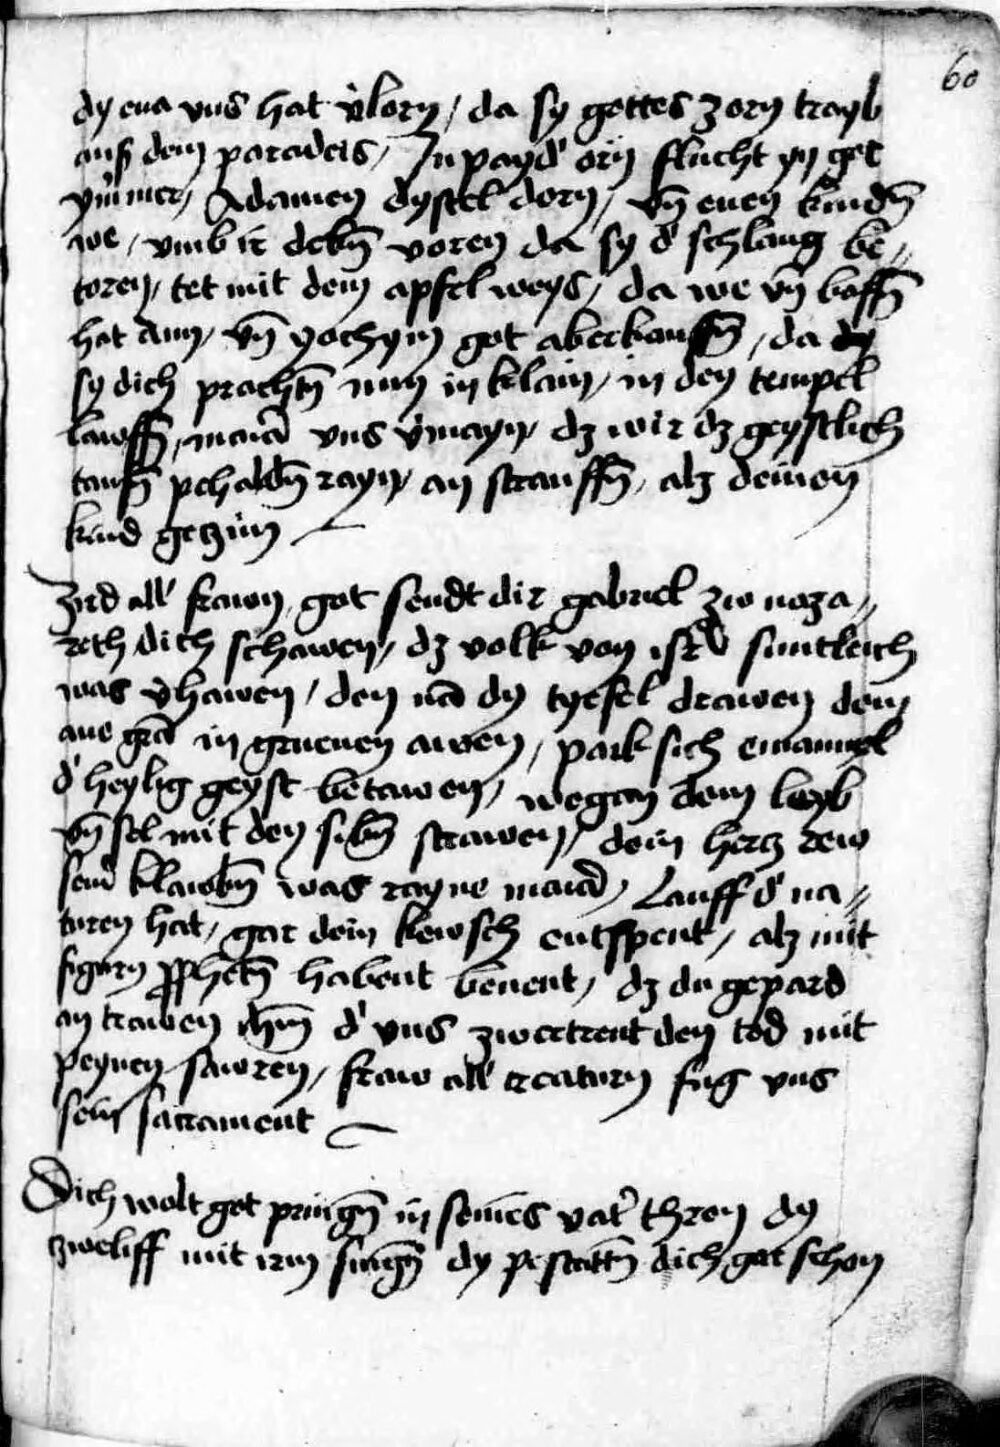 60
dy eua vns hat v̓lorn / da sy gottes zorn trayb
auß dem paradeis / In payd' orn flucht yn got
ym̄mer / Adamen dystel dorn / vn̄ euen kindn̄
we / vmb ir voren da sy d' schlang be〃
toren / tet mit dem apfel weys / da we vn̄
hat Ann / vn̄ yochym got aberkauffn̄ / da
sy dich prachtn̄ nun in klain / in den tempel
lawffn̄ / vns v̓mayn / dz wir dz geystlich
tauffn̄ pehaldn̄ rayn / an strauffn̄ / alz deinen
kind getzim
Zird all' frawen / got sendt dir gabriel zw naza〃
reth dich schawen / dz volk von isr̄l sunttleich
was v̓hawen / den dy tyefel drawen dem
aue grā in gruenen awen / park sich emanuel
d' heylig geyst betawen / wegan dem leyb
vn̄ sel mit den sibn̄ strawen / dein hertz rew
was rayne / Lauff d' na〃
turen hat / gar dein kewsch entspent / alz mit
figurn habent benent / dz du gepard
an trawen d' vns zwertrent den tod mit
peynen sawren / fraw all' creaturn fug vns
sein sacrament
Dich wolt got pringn̄ in seines vat' thron dy
zweliff mit irm singn̄ dy pestattn̄ dich gar schon